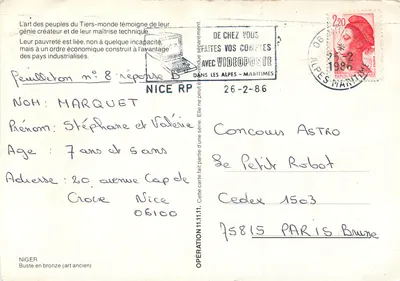 L'art des peuples du Tiers-monde témoigne de leur
génie créateur et de leur maîtrise technique.
Leur pauvreté est liée, non à quelque incapacité,
mais à un ordre économique construit à l'avantage
des pays industrialisés.
feuilleton n° 8 réponse B
NOM: MARQUET
Prénom: Stéphane et Valérie
Age: 7 ans et 5 ans
Adresse: 20 avenue Cap de
Croix Nice
06100
NIGER
Buste en bronze (art ancien)
DE CHEZ VOUS
FAITES VOS COMPTES
AVEC VIDEOPOSTE
DANS LES ALPES-MARITIMES
NICE RP 26-2-86
OPÉRATION 11.11.11. Cette carte fait partie d'une série. Elle ne peut
2,20
06
-2
1986
ALPES MARITIMES
Concours ASTRO
Le Petit Robot
Cedex 1503
75815 PARIS Brune